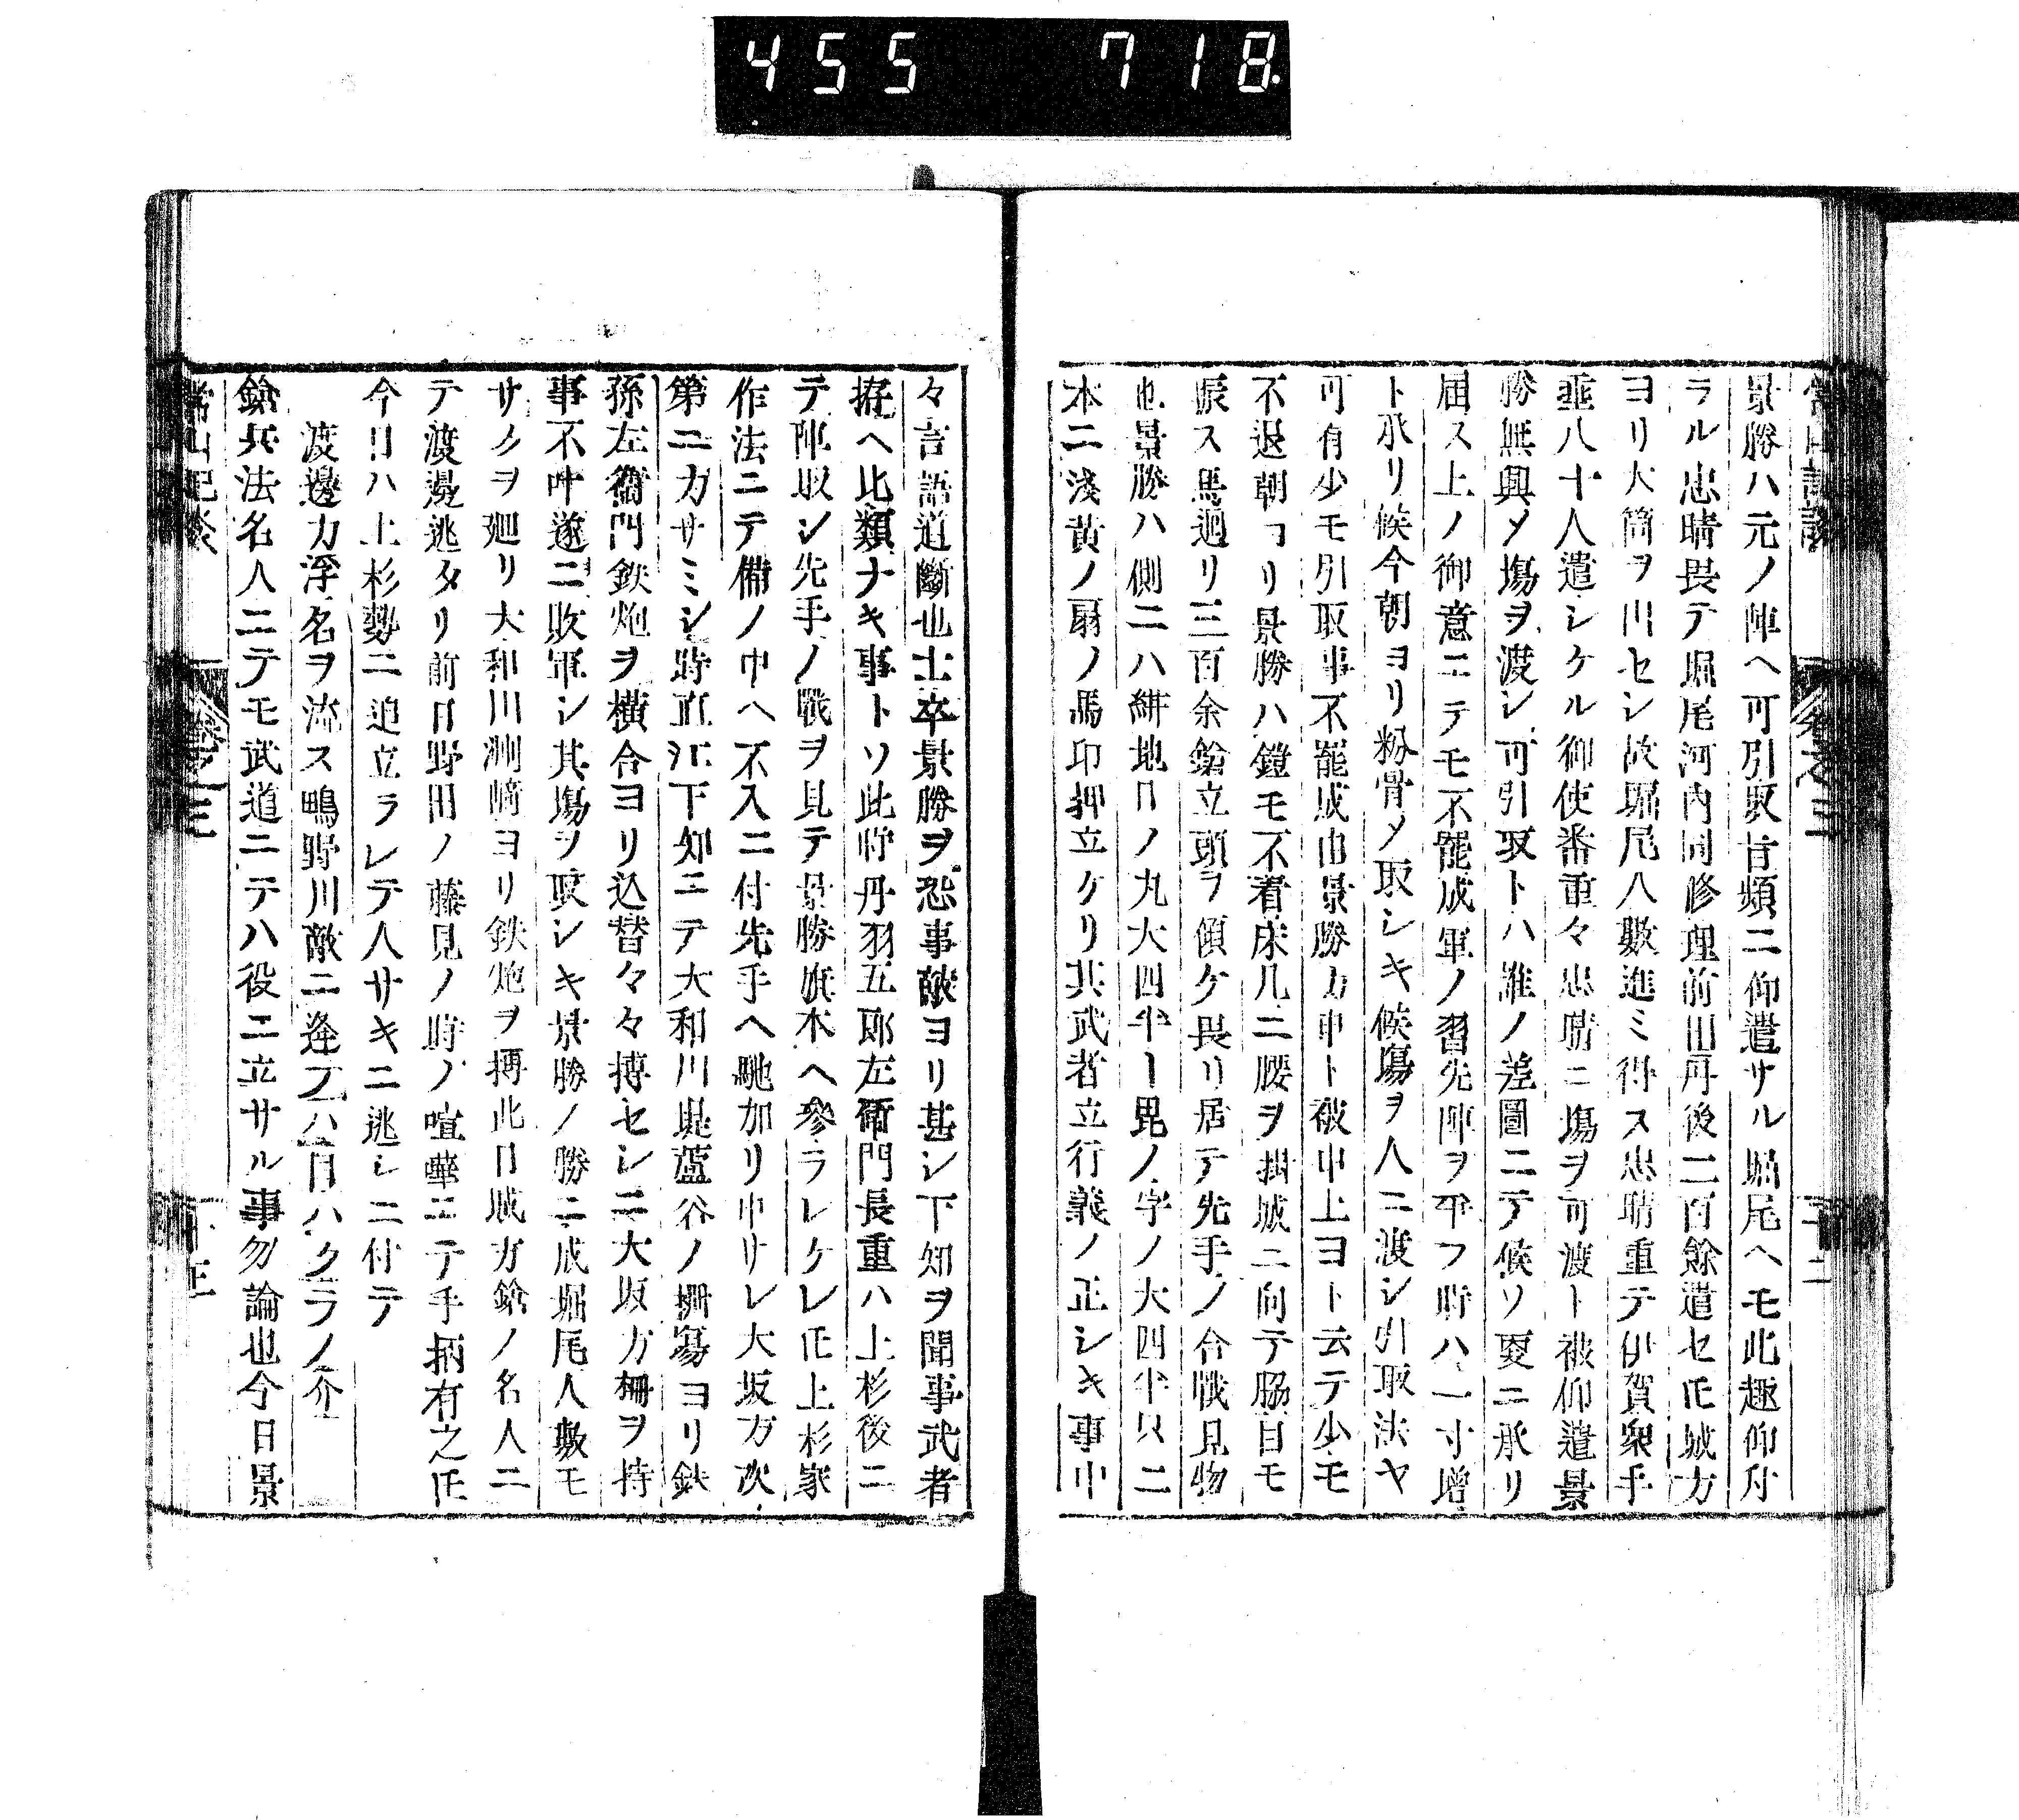 455 718
常山記談 卷之三 十二
景勝ハ元ノ陣ヘ可引取旨頻ニ仰遣サル堀尾ヘモ此趣仰付
ラル忠晴畏テ堀尾河内同修理前田丹後二百餘遣セ𪜈城方
ヨリ大筒ヲ出セシ故堀尾人數進ミ得ス忠晴重テ伊賀衆手
垂八十人遣シケル御使番重々忠晴ニ塲ヲ可渡ト被仰遣景
勝無興メ塲ヲ渡シ可引取トハ誰ノ差圖ニテ候ソ更ニ承リ
屆ス上ノ御意ニテモ不罷成軍ノ習先陣ヲ爭フ時ハ一寸增
ト承リ候今朝ヨリ粉骨メ取シキ候塲ヲ人ニ渡シ引取法ヤ
可有少モ引取事不罷成由景勝カ申ト被申上ヨト云テ少モ
不退朝ヨリ景勝ハ鎧モ不着床几ニ腰ヲ掛城ニ向テ脇目モ
振ス馬廻リ三百余鎗立頭ヲ傾ケ畏リ居テ先手ノ合戰見物
也景勝ハ側ニハ紺地日ノ丸大四半一毘ノ字ノ大四半只二
本ニ淺黄ノ扇ノ馬印押立ケリ其武者立行義ノ正シキ事中
々言語道斷也士卒景勝ヲ恐事敵ヨリ甚シ下知ヲ聞事武者
捴ヘ比類ナキ事トソ此時丹羽五郎左衞門長重ハ上杉後ニ
テ陣取シ先手ノ戰ヲ見テ景勝旗本ヘ參ラレケレ𪜈上杉家
作法ニテ備ノ中ヘ不入ニ付先手ヘ馳加リ申サレ大坂方次
第ニカサミシ時直江下知ニテ大和川堤蘆谷ノ柵塲ヨリ鉄
孫左衞門鉄炮ヲ横合ヨリ込替々々搏セシニ大坂方柵ヲ持
事不叶遂ニ敗軍シ其塲ヲ取シキ景勝ノ勝ニ成堀尾人數モ
サノヲ廻リ大和川洲﨑ヨリ鉄炮ヲ搏此日城方鎗ノ名人ニ
テ渡邊逃タリ前日野田ノ藤見ノ時ノ喧嘩ニテ手柄有之𪜈
今日ハ上杉勢ニ追立ラレテ人サキニ逃シニ付テ
渡邊カ浮名ヲ流ス鴫野川敵ニ逢テハ目ハクラノ介
鎗兵法名人ニテモ武道ニテハ役ニ立サル事勿論也今日景
常山記談 卷之三 十三